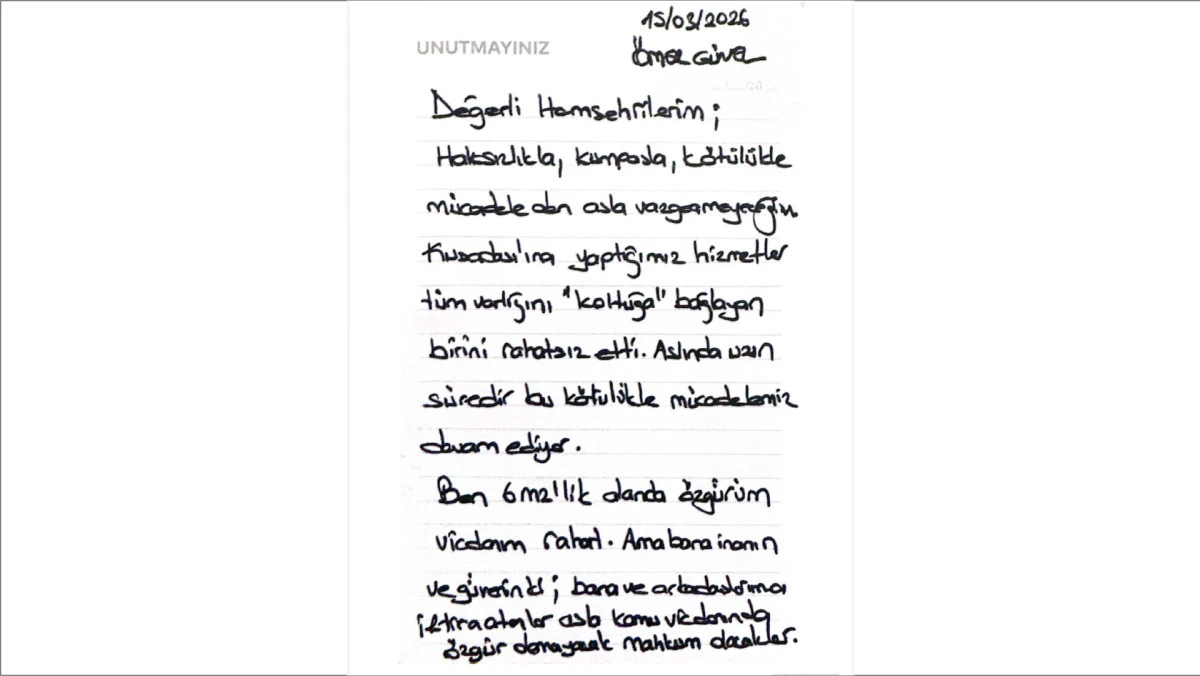 15/03/2026
UNUTMAYINIZ
Ömer Günel
Değerli Hemşehrilerim;
Haksızlıkla, kumpasla, kötülükle
mücadeleden asla vazgeçmeyeceğim.
Kuşadası'na yaptığımız hizmetler
tüm varlığını "koltuğa" bağlayan
birini rahatsız etti. Aslında uzun
süredir bu kötülükle mücadelemiz
devam ediyor.
Ben 6 m2'lik alanda özgürüm
vicdanım rahat. Ama bana inanın
ve güvenin ki; bana ve arkadaşlarıma
iftira atanlar asla kamu vicdanında
özgür olamayacak mahkum olacaklar.